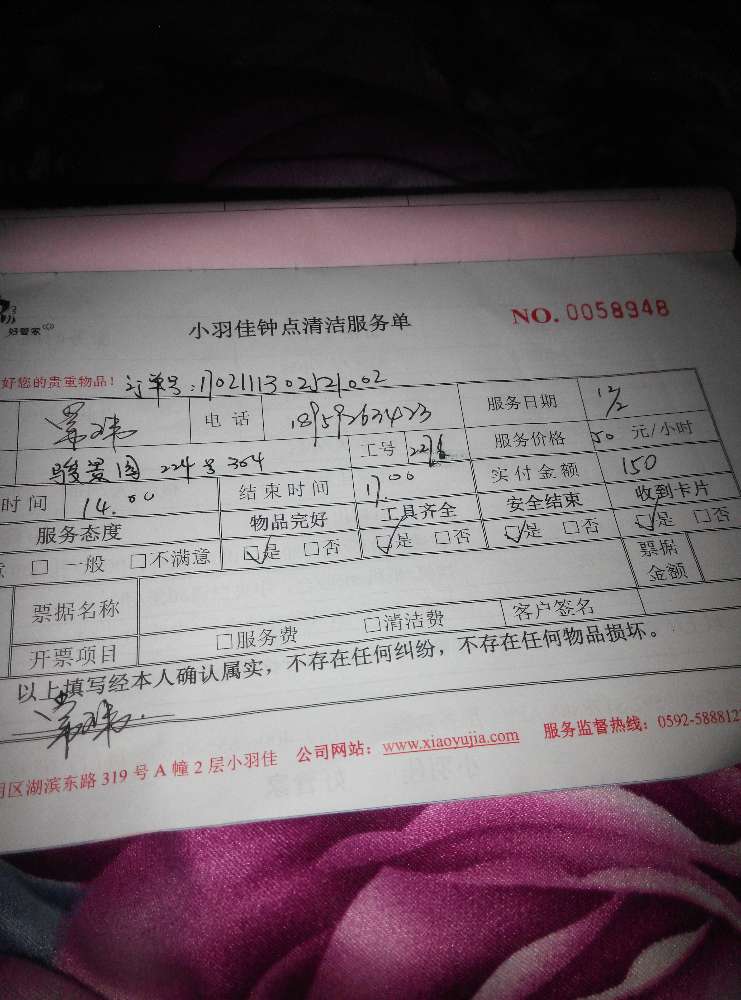 好管家
小羽佳钟点清洁服务单
NO. 0058948
好您的贵重物品! 订单号:
电话 服务日期 12/2
224号304 工号 服务价格 50 元/小时
时间 14.00 结束时间 17.00 实付金额 150
服务态度 物品完好 工具齐全 安全结束 收到卡片
□ 一般 □不满意 ☑是 □否 ☑是 □否 ☑是 □否 ☑是 □否
票据名称 票据金额
开票项目 □服务费 □清洁费 客户签名
以上填写经本人确认属实,不存在任何纠纷,不存在任何物品损坏。
区湖滨东路 319 号 A 幢 2 层小羽佳 公司网站: www.xiaoyujia.com 服务监督热线: 0592-588812